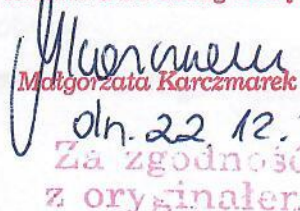 Małgorzata Karczmarek
dn. 22.12.
Za zgodność
z oryginałem